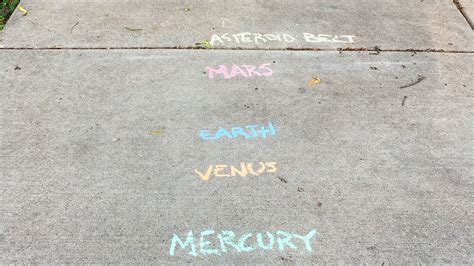 ASTEROID BELT
MARS
EARTH
VENUS
MERCURY